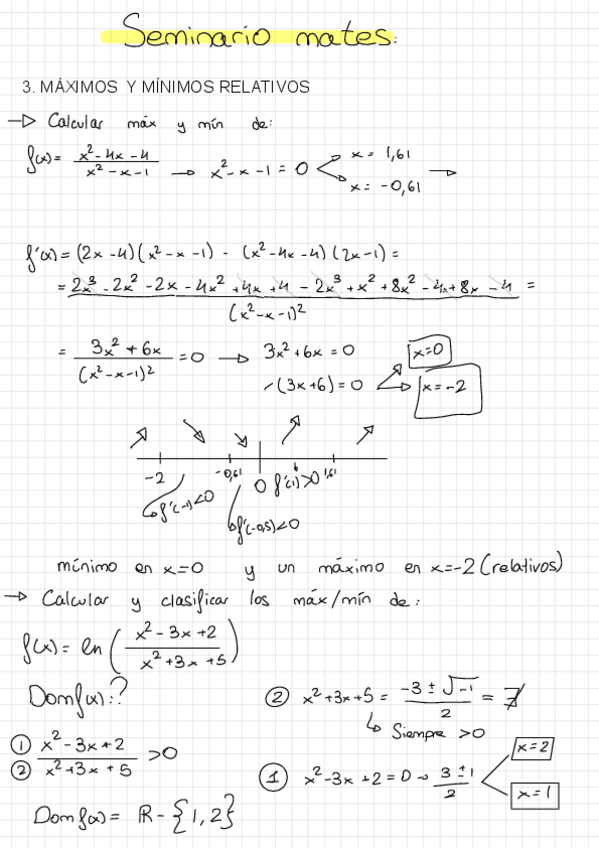 Seminario mates:
3. MÁXIMOS Y MÍNIMOS RELATIVOS
→ Calcular máx y mín de:
f(x) = (x² - 4x - 4)/(x² - x - 1) → x² - x - 1 = 0 < x = 1,61 →
x = -0,61
f'(x) = (2x - 4)(x² - x - 1) - (x² - 4x - 4)(2x - 1) =
= (2x³ - 2x² - 2x - 4x² + 4x + 4 - 2x³ + x² + 8x² - 4x + 8x - 4)/(x² - x - 1)² =
= (3x² + 6x)/(x² - x - 1)² = 0 → 3x² + 6x = 0 x = 0
(3x + 6) = 0 x = -2
-2 -0,61 0 f'(1)>0 1,61
f'(-1)<0
f'(-0,5)<0
mínimo en x=0 y un máximo en x=-2 (relativos)
→ Calcular y clasificar los máx/mín de:
f(x) = ln((x² - 3x + 2)/(x² + 3x + 5))
Dom f(x):?
① x² - 3x + 2
② x² + 3x + 5 > 0
② x² + 3x + 5 = (-3 ± √-1)/2 = ∄
↳ Siempre > 0
① x² - 3x + 2 = 0 → (3 ± 1)/2 x = 2
x = 1
Dom f(x) = R - {1, 2}